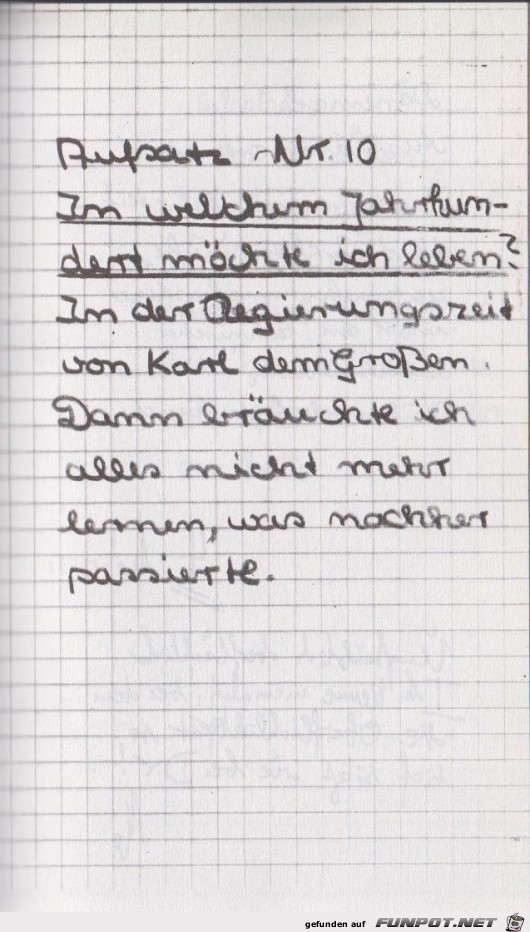 Aufsatz Nr. 10
In welchem Jahrhun-
dert möchte ich leben?
In der Regierungszeit
von Karl dem Großen.
Dann bräuchte ich
alles nicht mehr
lernen, was nachher
passierte.
gefunden auf FUNPOT.NET